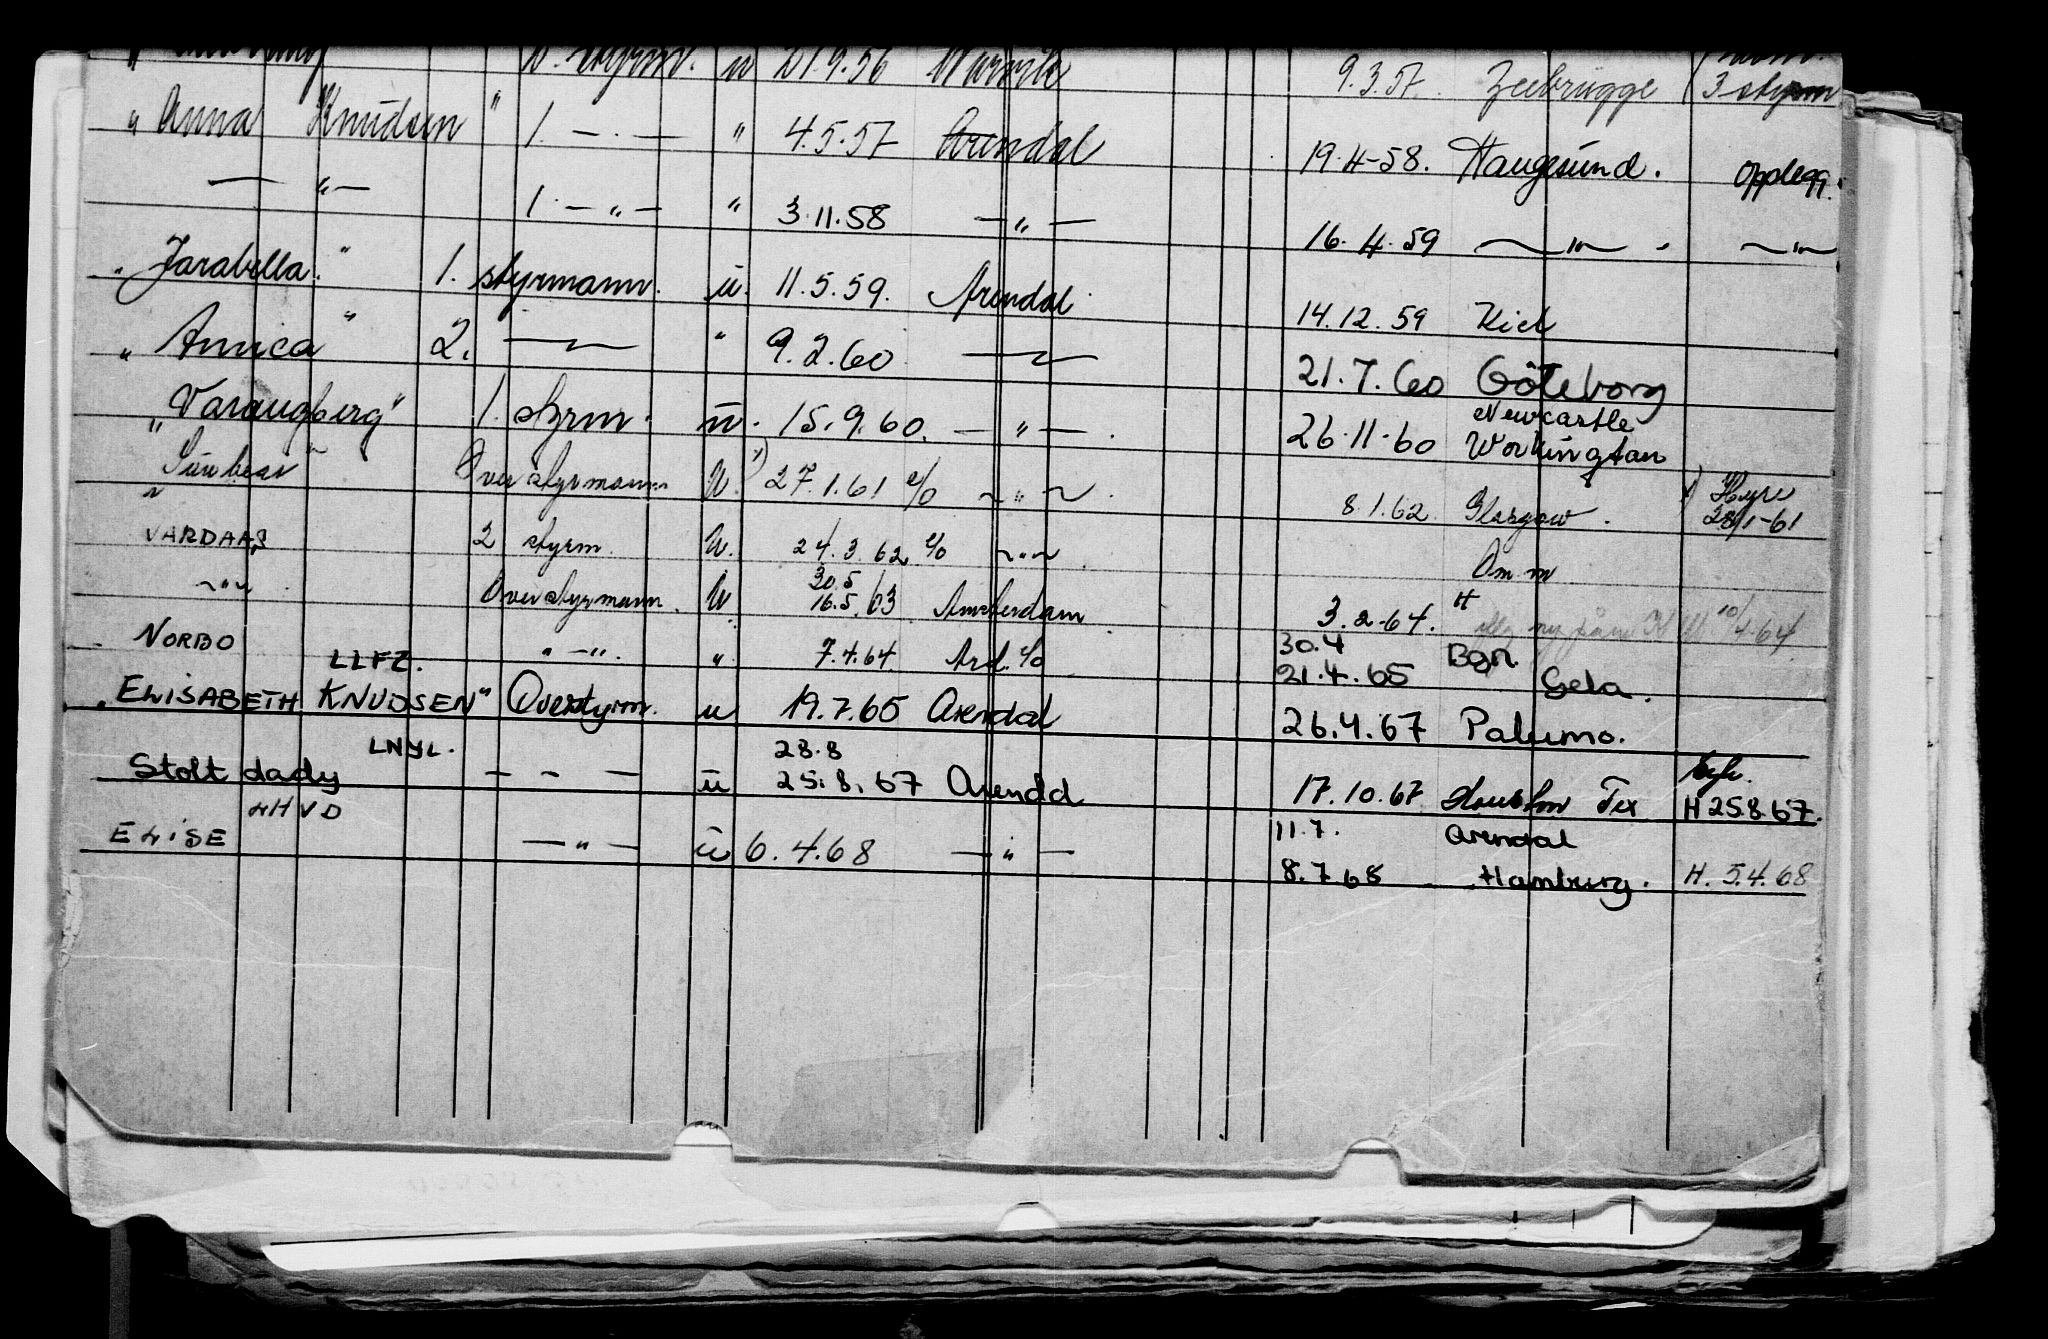 21.9.56 9.3.57. Zeebrügge 3 styrm
" Anna Knudsen " 1. — · — " 4.5.57 Arendal 19.4-58. Haugesund. Opplegg.
— " — 1. — " — " 3.11.58 — " — 16.4.59 — " — . — " —
" Jarabella. " 1. styrmann. u. 11.5.59. Arendal 14.12.59 Kiel
" Annica " 2. — " — " 9.2.60 — " — 21.7.60 Göteborg
" Varangberg " 1. styrm. u. 15.9.60. — " — . Newcastle
26.11.60 Workington
" Sunbear " Overstyrmann U. 1) 27.1.61 % — " — . 8.1.62 Glasgow . 1) Hyre
28/1-61
VARDAAS 2 styrm. U. 24.3.62 % — " — Om m
— " — . Overstyrmann. U. 30.5
16.5.63 Amsterdam 3.2.64. H 10/4.64
NORBO " — " . " 7.4.64 Ard. % 30.4 Bgn
LLFZ. 21.4.65 Gela.
" ELISABETH KNUDSEN " Overstyrm. u 19.7.65 Arendal 26.4.67 Palermo.
LNYL. 28.8
Stolt dady — — — u 25.8.67 Arendal 17.10.67 Houston Tex H 25.8.67.
LHVD 11.7. Arendal
ELISE — " — u 6.4.68 — " — 8.7.68 Hamburg. H. 5.4.68